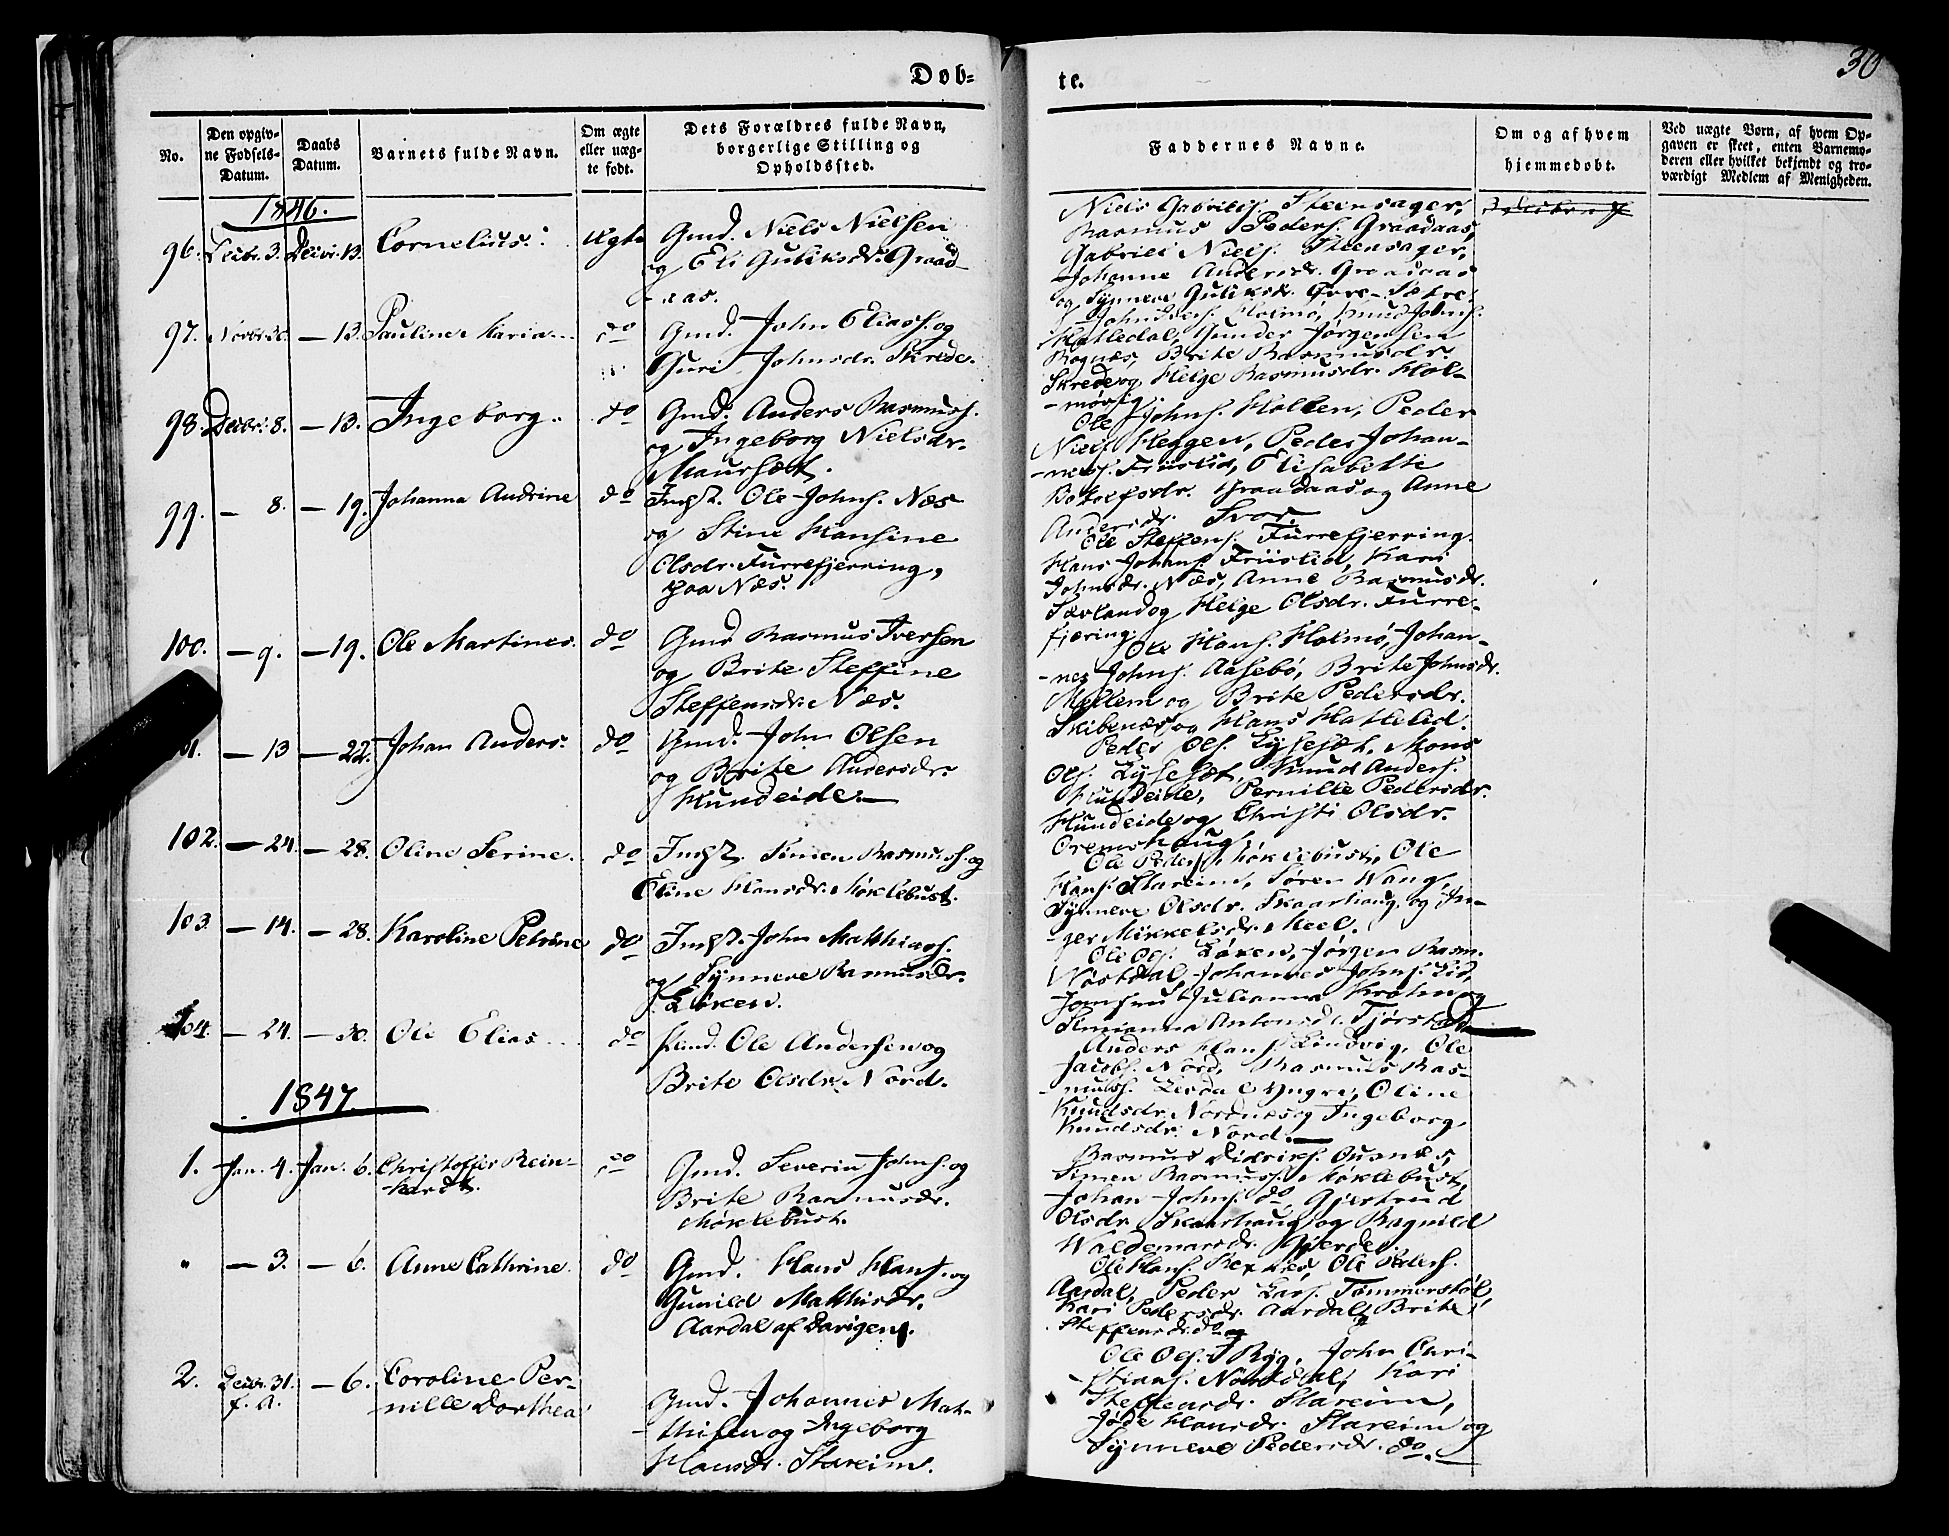 Døb-
te.
30
No.
Den opgiv-
ne Fødsels-
Datum.
Daabs
Datum.
Barnets fulde Navn.
Om ægte
eller uæg-
te født.
Dets Forældres fulde Navn,
borgerlige Stilling og
Opholdssted.
Faddernes Navne.
Om og af hvem
hjemmedøbt.
Ved uægte Børn, af hvem Op-
gaven er skeet, enten Barnemo-
deren eller hvilket bekjendt og tro-
værdigt Medlem af Menigheden.
1846.
96. Decbr. 3. Decbr. 13. Cornelius. Ægte Gmd. Niels Nielsen
og Eli Guliksdr. Graad-
-aas.
Niels Gabriels. Steensager,
Rasmus Peders. Graadaas,
Gabriel Niels. Steensager,
Johanne Andersdr. Graadaas
og Synneve Guliksdr.
97. — 13. Pauline Maria do Gmd. John Eliass. og
Guri Johnsdr. Skrede.
Holmø, Knud Johns.
Hatledal, Gunder Jørgensen
Bognæs, Brite Rasmusdr.
Skrede og Helge Rasmusdr. Hol-
-mørig.
98. Decbr. 8. — 13. Ingeborg. do Gmd. Anders Rasmuss.
og Ingeborg Nielsdr.
Maursæt.
Ole Johns. Holten, Peder
Niels. Heggen, Peder Johan-
-ness. Friislid, Elisabeth
Graadaas og Anne
Andersdr.
99. — 8. — 19. Johanna Andrine do Ole Johns. Næs
og Stine Hansine
Olsdr. Furrefjerring,
paa Næs.
Ole Steffens. Furrefjerring.
Hans Johans. Friislid, Kari
Johnsdr. Næs, Anne Rasmusdr.
og Helge Olsdr. Furre-
fjæring.
100. — 9. — 19. Ole Martines. do Gmd Rasmus Iversen
og Brite Steffine
Steffensdr. Næs.
Ole Hans. Holmø, Johan-
-nes Johns. Aasebø, Brite Johnsdr.
Mellem og Brite Pedersdr.
Skibenæs og Hans Hatlelid.
— 13 — 22. Johan Anders. do Gmd. John Olsen
og Brite Andersdr.
Hundeide.—
Peder Ols. Lysesæt, Mons
Ols. Lysesæt, Knud Anders.
Hundeide, Pernille Pedersdr.
Hundeide og Christi Olsdr.
Oremshaug.
102. — 24. — 28. Oline Serine. do Simen Rasmuss. og
Eline Hansdr. Møklebust.
Ole Peders. Møklebust, Ole
Hans. Stareim, Søren Wang,
Synneve Olsdr. Skaarhaug og In-
-ger Mikkelsdr. Heel.
103. — 14. — 28. Karoline Petrine do John Matthiass.
og Synneve Rasmusdr.
Løken.
Ole Ols. Løken, Jørgen Rasm.
Nøstdal, Johannes Johns. Lid,
Jomfru Julianna Krohn og
Antonsdr.
104. — 24. — 30. Ole Elias do Ole Andersen og
Brite Olsdr. Nord.
Anders Hans. Lindvig, Ole
Jacobs. Nord, Rasmus Ras-
-muss. Yngre, Oline
Knudsdr. Nordnes og Ingeborg
Knudsdr. Nord.—
1847.
1. Jan. 4. Jan. 6. Christoffer Rein-
-hardt. do Gmd. Severin Johns. og
Brite Rasmusdr.
Møklebust.
Rasmus Didriks. Ousnes,
Simen Rasmuss. Møklebust,
Johan Johns. do, Gjertrud
Olsdr. Skaarhaug og Ragnild
Waldemarsdr. Gjerde.
" — 3. — 6. Anne Cathrine. do Gmd. Hans Hans. og
Gunild Matthisdr.
Aardal af Davigen.
Ole Hans. Ole Peders.
Aardal, Peder Lars. Tømmerstøl,
Kari Pedersdr. Aardal, Brite
Steffensdr. do
2. Decbr. 31. — 6. Caroline Per-
f. A. -nille Dorthea
Gmd. Johannes Mat-
-thisen og Ingeborg
Hansdr. Stareim.
Ole Ols. Ryg, John Chri-
-stians. Nøstdal, Kari
Steffensdr. Stareim,
Jøde Hansdr. Stareim og
Synneve Pedersdr. do.